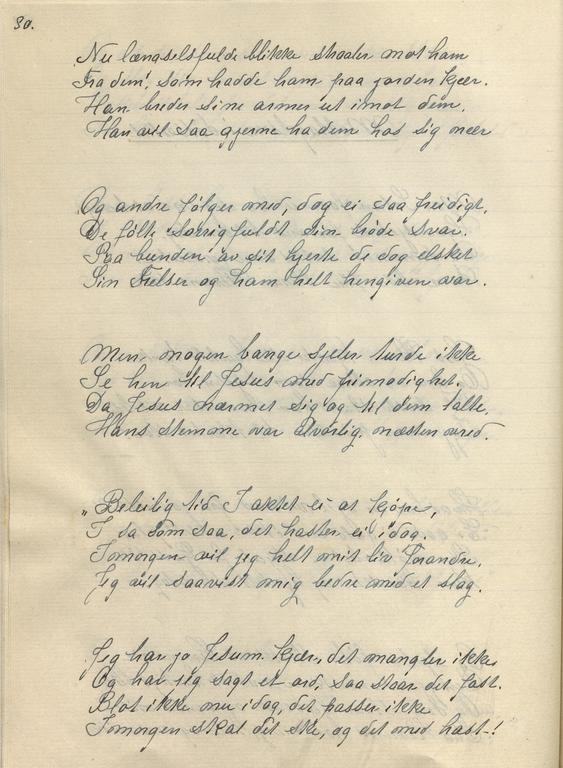 30.
Nu længselsfulde blikke straaler mot ham
Fra dem, som hadde ham paa jorden kjær.
Han breder sine armer ut imot dem.
Han vil saa gjerne ha dem hos sig nær
Og andre følger med, dog ei saa freidigt,
De følte sorrigfuldt sin bröde svar.
Paa bunden av sit hjerte de dog elsket
Sin Frelser og ham helt hengiven var.
Men nogen bange sjeler turde ikke
Se hen til Jesus med frimodighet.
Da Jesus nærmet sig og til dem talte,
Hans stemme var alvorlig, næsten vred.
„Beleilig tid I aktet ei at kjöpe,
I sa som saa, det haster ei idag.
Imorgen vil jeg helt mit liv forandre,
Jeg vil saavist mig bedre med et slag.
Jeg har jo Jesum kjær, det mangler ikke
Og har jeg sagt et ord, saa staar det fast.
Blot ikke nu idag, det passer ikke
Imorgen skal det ske, og det med hast-!